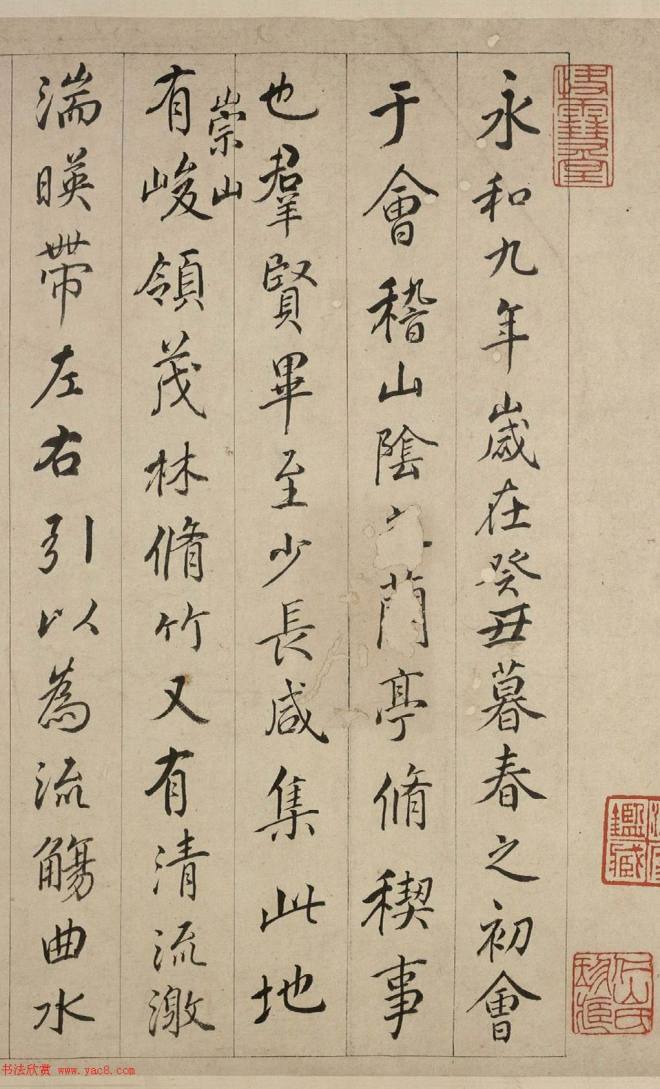 永和九年歲在癸丑暮春之初會
于會稽山陰之蘭亭脩稧事
也羣賢畢至少長咸集此地
有崇山峻領茂林脩竹又有清流激
湍暎帶左右引以為流觴曲水
鑑藏
书法欣赏 www.yac8.com